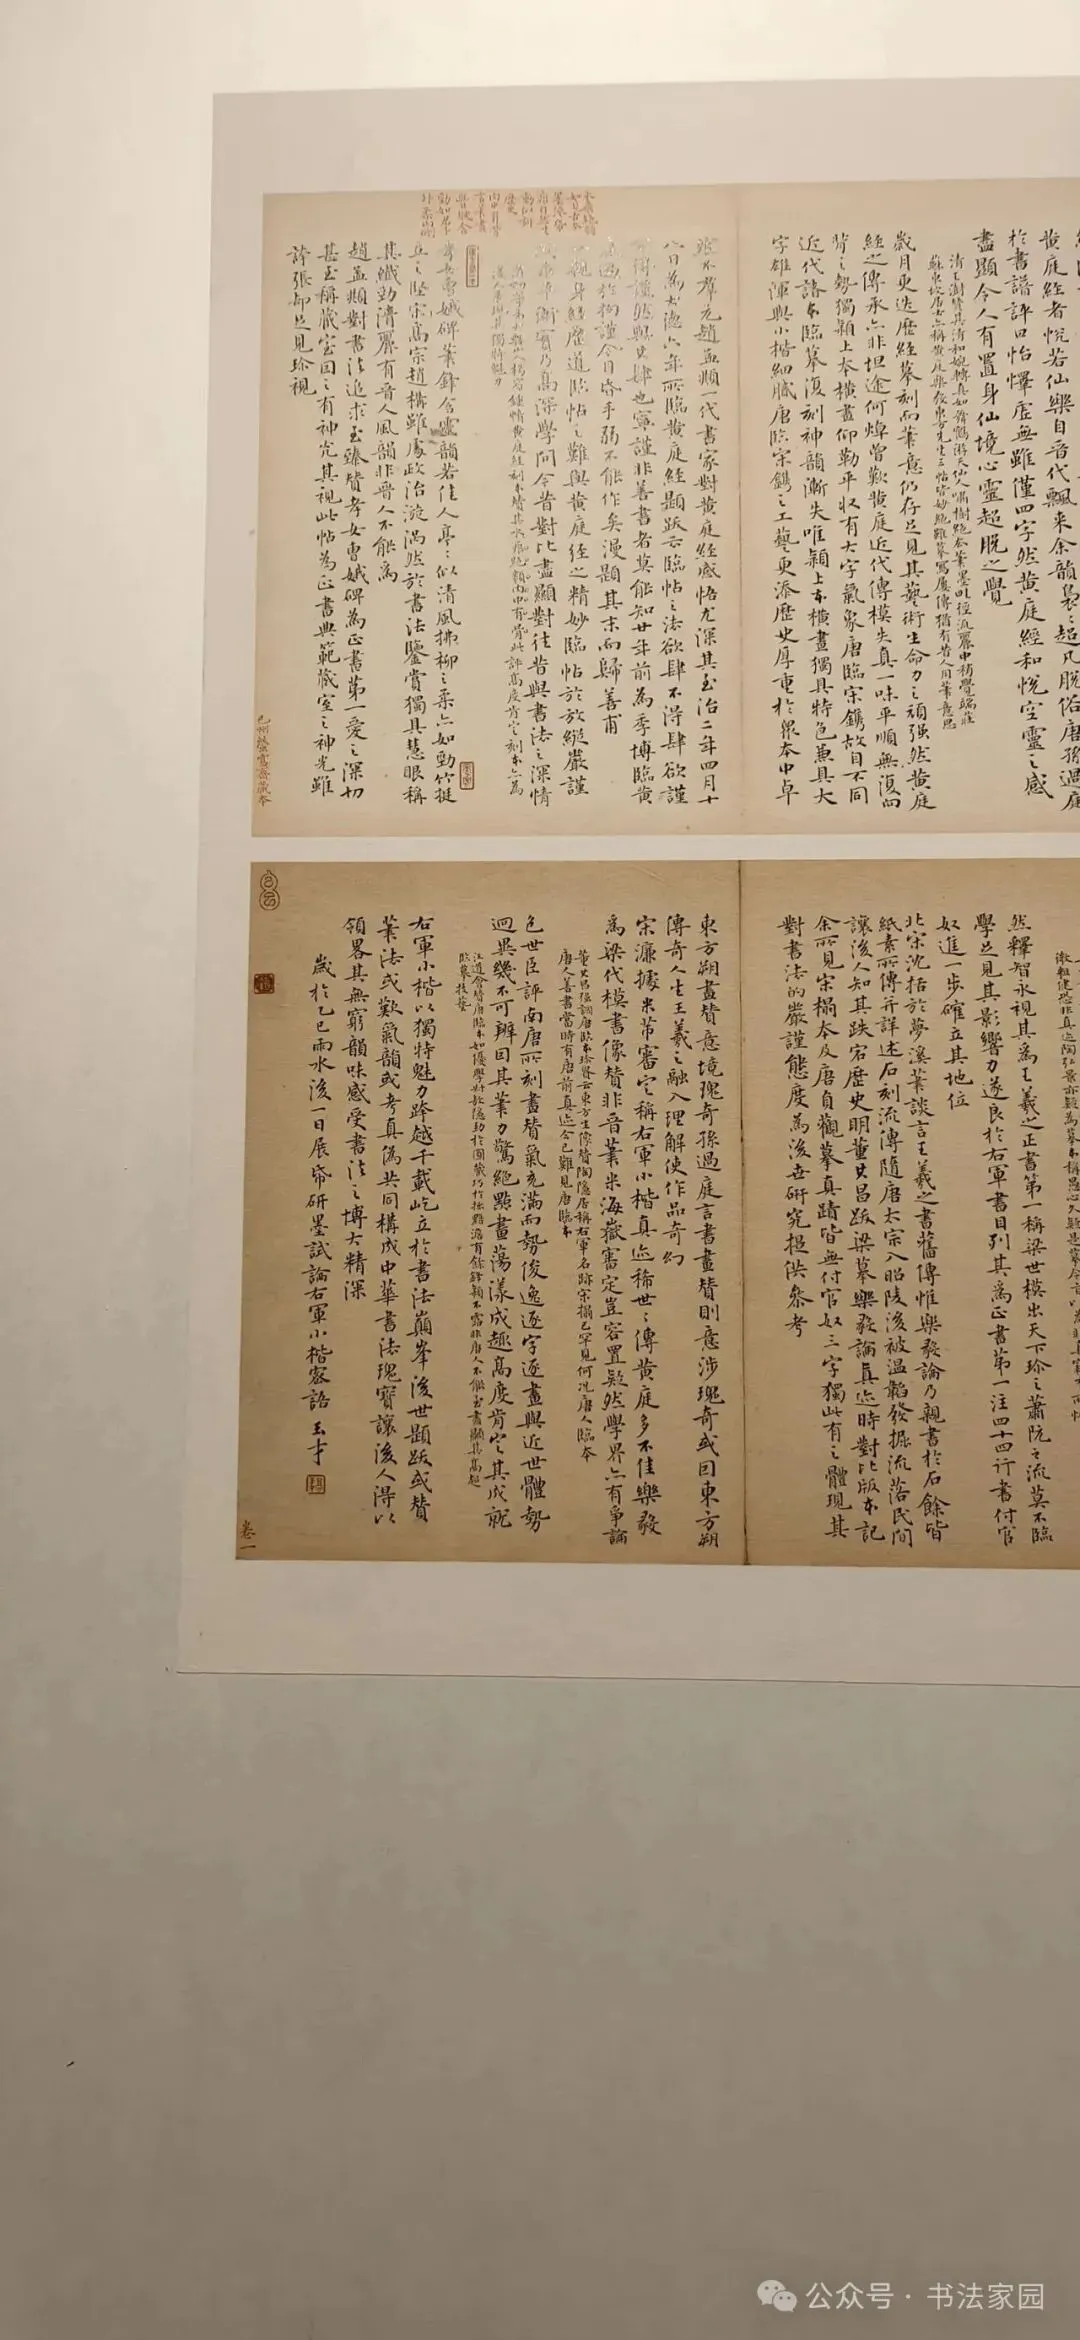 黃庭經者恍若仙樂自晉代飄來余韻裊裊超凡脫俗唐孫過庭
於書譜評曰怡懌虛無雖僅四字然黃庭經和悅空靈之感
盡顯令人有置身仙境心靈超脫之覺
歲月更迭歷經摹刻而筆意仍存足見其藝術生命力之頑强然黃庭
經之傳承亦非坦途何焯曾歎黃庭近代傳模失真一味平順無復向
背之勢獨潁上本橫畫仰勒平收有大字氣象唐臨宋鐫故自不同
近代諸本臨摹復刻神韻漸失唯潁上本橫畫獨具特色兼具大
字雄渾與小楷細膩唐臨宋鐫之工藝更添歷史厚重於眾本中卓
然不羣元趙孟頫一代書家對黃庭經感悟尤深其至治二年四月十
八日為大德六年所臨黃庭經題跋云臨帖之法欲肆不得肆欲謹
不得謹然與其肆也寧謹非善書者莫能知廿年前為季博臨黃
過於拘謹今目昏手弱不能作矣漫題其末而歸善甫
親身經歷道臨帖之難與黃庭經之精妙臨帖於放縱嚴謹
乃高深學問今昔對比盡顯對往昔與書法之深情
孝女曹娥碑筆鋒含靈韻若佳人亭亭似清風拂柳之柔亦如勁竹挺
立之堅宋高宗趙構雖處政治漩渦然於書法鑒賞獨具慧眼稱
其纖勁清麗有晉人風韻非晉人不能為
趙孟頫對書法追求至臻贊孝女曹娥碑為正書第一愛之深切
甚至稱藏室因之有神光其視此帖為正書典範藏室之神光雖
誇張却足見珍視
然釋智永視其為王羲之正書第一稱梁世模出天下珍之蕭阮之流莫不臨
學足見其影響力遂良於右軍書目列其為正書第一注四十四行書付官
奴進一步確立其地位
北宋沈括於夢溪筆談言王羲之書舊傳惟樂毅論乃親書於石餘皆
紙素所傳并詳述石刻流傳隨唐太宗入昭陵後被溫韜發掘流落民間
讓後人知其跌宕歷史明董其昌跋梁摹樂毅論真迹時對比版本記
余所見宋榻本及唐貞觀摹真蹟皆無付官奴三字獨此有之體現其
對書法的嚴謹態度為後世研究提供參考
東方朔畫贊意境瑰奇孫過庭言書畫贊則意涉瑰奇或因東方朔
傳奇人生王羲之融入理解使作品奇幻
宋濂據米芾審定稱右軍小楷真迹稀世世傳黃庭多不佳樂毅
為梁代模書像贊非晉筆米海嶽審定豈容置疑然學界亦有爭論
董其昌强調唐臨本珍貴云東方生像贊陶隱居稱右軍名跡宋搨已罕見何况唐人臨本
唐人善書當時有唐前真迹今已難見唐臨本
包世臣評南唐所刻畫贊氣充滿而勢俊逸逐字逐畫與近世體勢
迥異幾不可辨因其筆力驚絕點畫蕩漾成趣高度肯定其成就
臨摹技藝
右軍小楷以獨特魅力跨越千載屹立於書法巔峯後世題跋或贊
筆法或歎氣韻或考真偽共同構成中華書法瑰寶讓後人得以
領略其無窮韻味感受書法之博大精深
歲於乙巳雨水後一日展帋研墨試論右軍小楷密語 玉才
卷一
公众号·书法家园